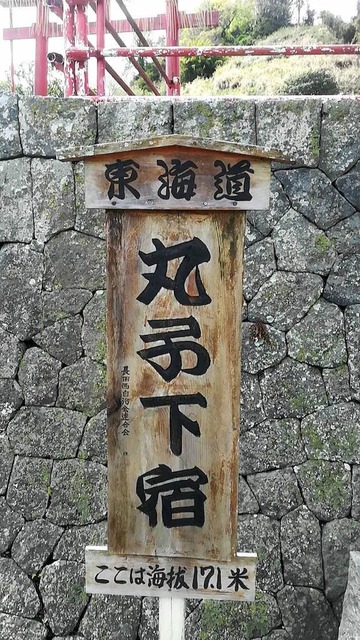 東海道
丸子下宿
長田西自治会連合会
ここは海抜17.1米